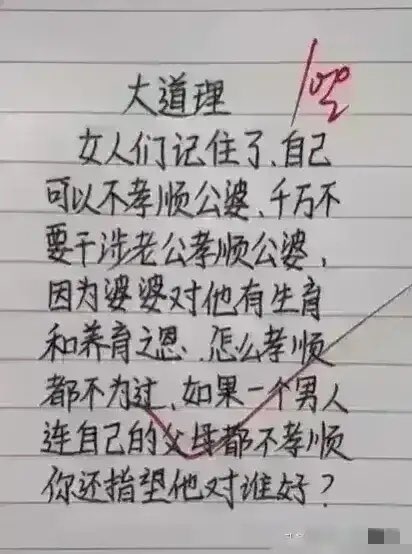 大道理
100
女人们记住了、自己
可以不孝顺公婆、千万不
要干涉老公孝顺公婆，
因为婆婆对他有生育
和养育之恩、怎么孝顺
都不为过、如果一个男人
连自己的父母都不孝顺
你还指望他对谁好？